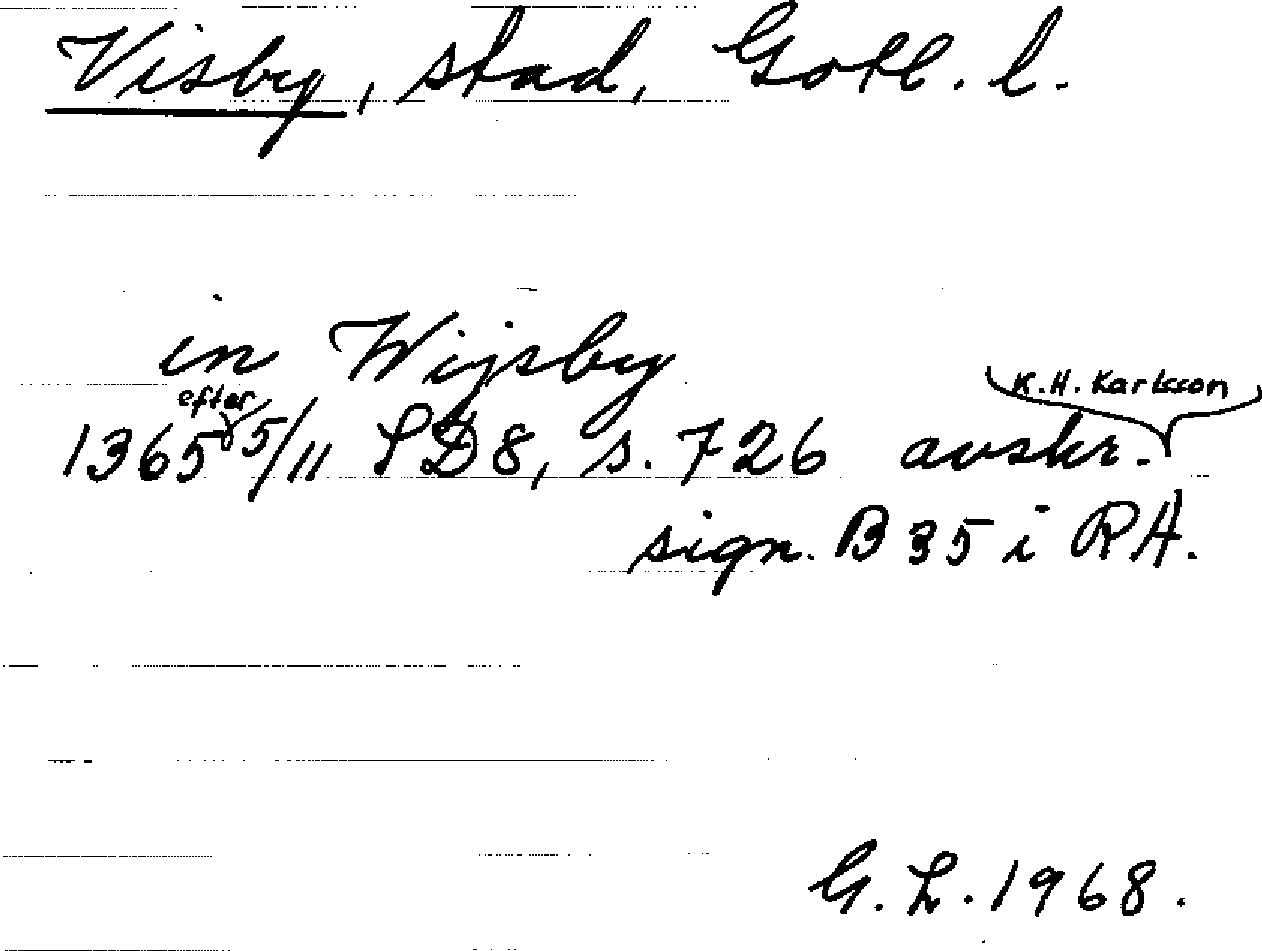 Visby, stad, Gotl. l.
in Wijsby
1365 efter 5/11 SD8, s. 726 K.H. Karlsson avskr.
sign. B 35 i RA.
G. L. 1968.